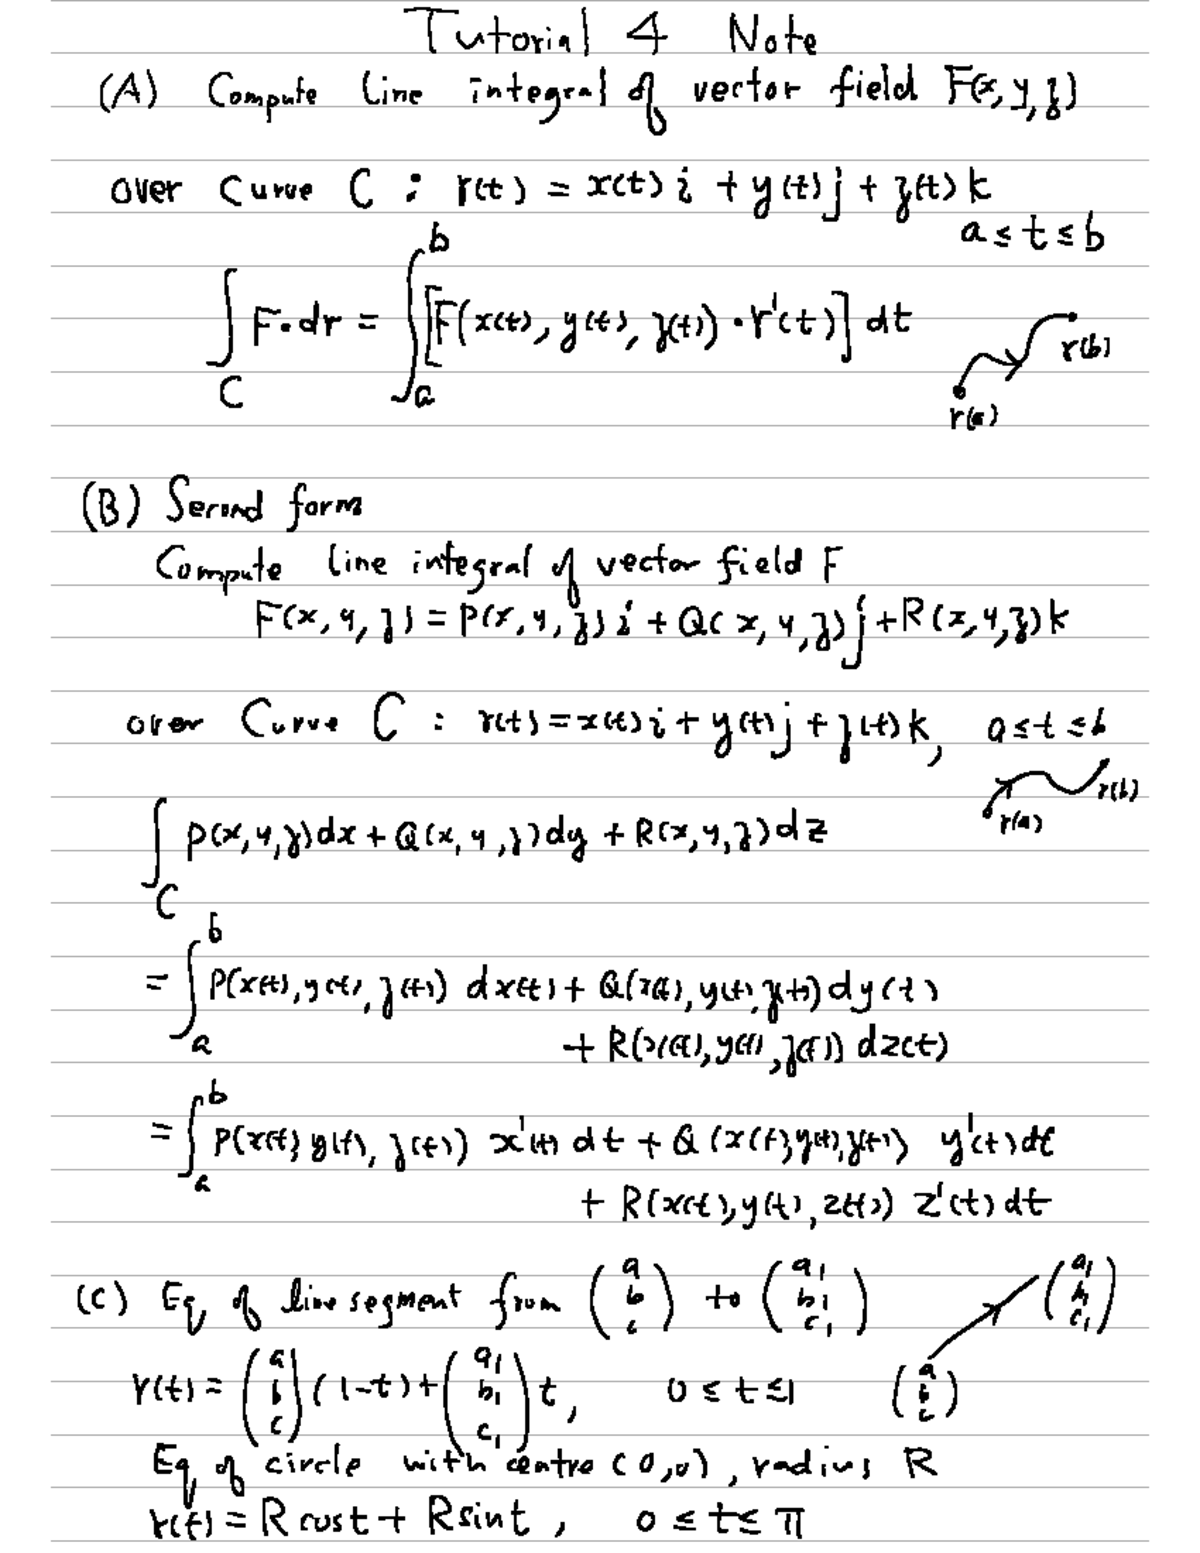 Tutorial 4 Note
(A) Compute line integral of vector field F(x, y, z)
over curve C : r(t) = x(t) i + y(t) j + z(t) k
a ≤ t ≤ b
∫_C F·dr = ∫_a^b [F(x(t), y(t), z(t)) · r'(t)] dt
r(a) r(b)
(B) Second form
Compute line integral of vector field F
F(x, y, z) = P(x, y, z) i + Q(x, y, z) j + R(x, y, z) k
over Curve C : r(t) = x(t) i + y(t) j + z(t) k, a ≤ t ≤ b
r(a) r(b)
∫_C P(x, y, z) dx + Q(x, y, z) dy + R(x, y, z) dz
= ∫_a^b P(x(t), y(t), z(t)) dx(t) + Q(x(t), y(t), z(t)) dy(t)
+ R(x(t), y(t), z(t)) dz(t)
= ∫_a^b P(x(t), y(t), z(t)) x'(t) dt + Q(x(t), y(t), z(t)) y'(t) dt
+ R(x(t), y(t), z(t)) z'(t) dt
(C) Eq of line segment from (a b c) to (a₁ b₁ c₁)
(a₁ b₁ c₁)
r(t) = (a b c) (1-t) + (a₁ b₁ c₁) t, 0 ≤ t ≤ 1
(a b c)
Eq of circle with centre (0,0), radius R
r(t) = R cost + R sint, 0 ≤ t ≤ π